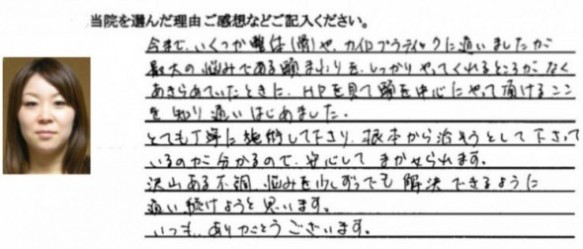 当院を選んだ理由ご感想などご記入ください。
今まで、いくつか整体(骨)や、カイロプラティックに通いましたが
最大の悩みである顔まわりを、しっかりやってくれるところがなく
あきらめていたときに、HPを見て顔を中心にやって頂けるここ
を知り通いはじめました。
とても丁寧に施術して下さり、根本から治そうとして下さって
いるのが分かるので、安心して まかせられます。
沢山ある不調、悩みを少しずつでも 解決できるように
通い続けようと思います。
いつも、ありがとうございます。